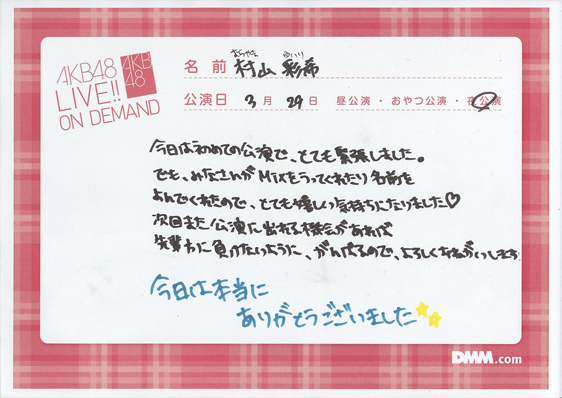 AKB48
LIVE!!
ON DEMAND
AKB
48
むらやま ゆいり
名前 村山 彩希
公演日 3月29日 昼公演・おやつ公演・夜公演
今日は初めての公演で、とても緊張しました。
でも、みなさんがMIXをうってくれたり名前を
よんでくれたので、とても嬉しい気持ちになりました♡
次回また公演に出れる機会があれば
先輩方に負けないように、がんばるので、よろしくおねがいします!
今日は本当に
ありがとうございました
DMM.com